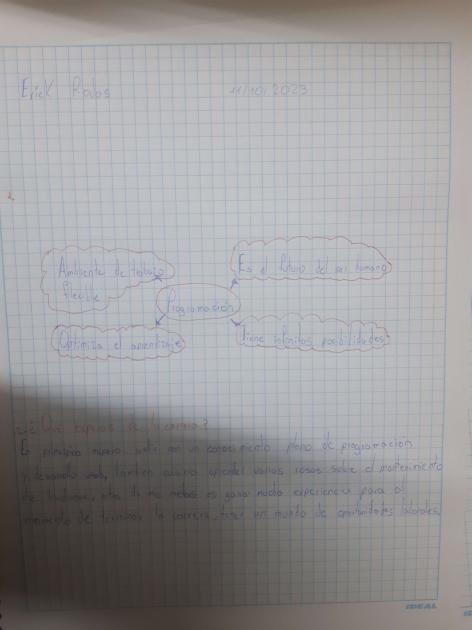 Erick Robos
11/10/2023
2.
Ambiente de trabajo
flexible
Es el futuro del ser humano
Programación
Optimiza el aprendizaje
Tiene infinitas posibilidades
2. ¿Que esperas de la carrera?
En principio espero salir con un conocimiento pleno de programación
y desarrollo web, tambien quiero aprender varias cosas sobre el mantenimiento
de, otra de mis metas es ganar mucha experiencia para al
momento de terminar la carrera, tener un mundo de oportunidades laborales
IDEAL